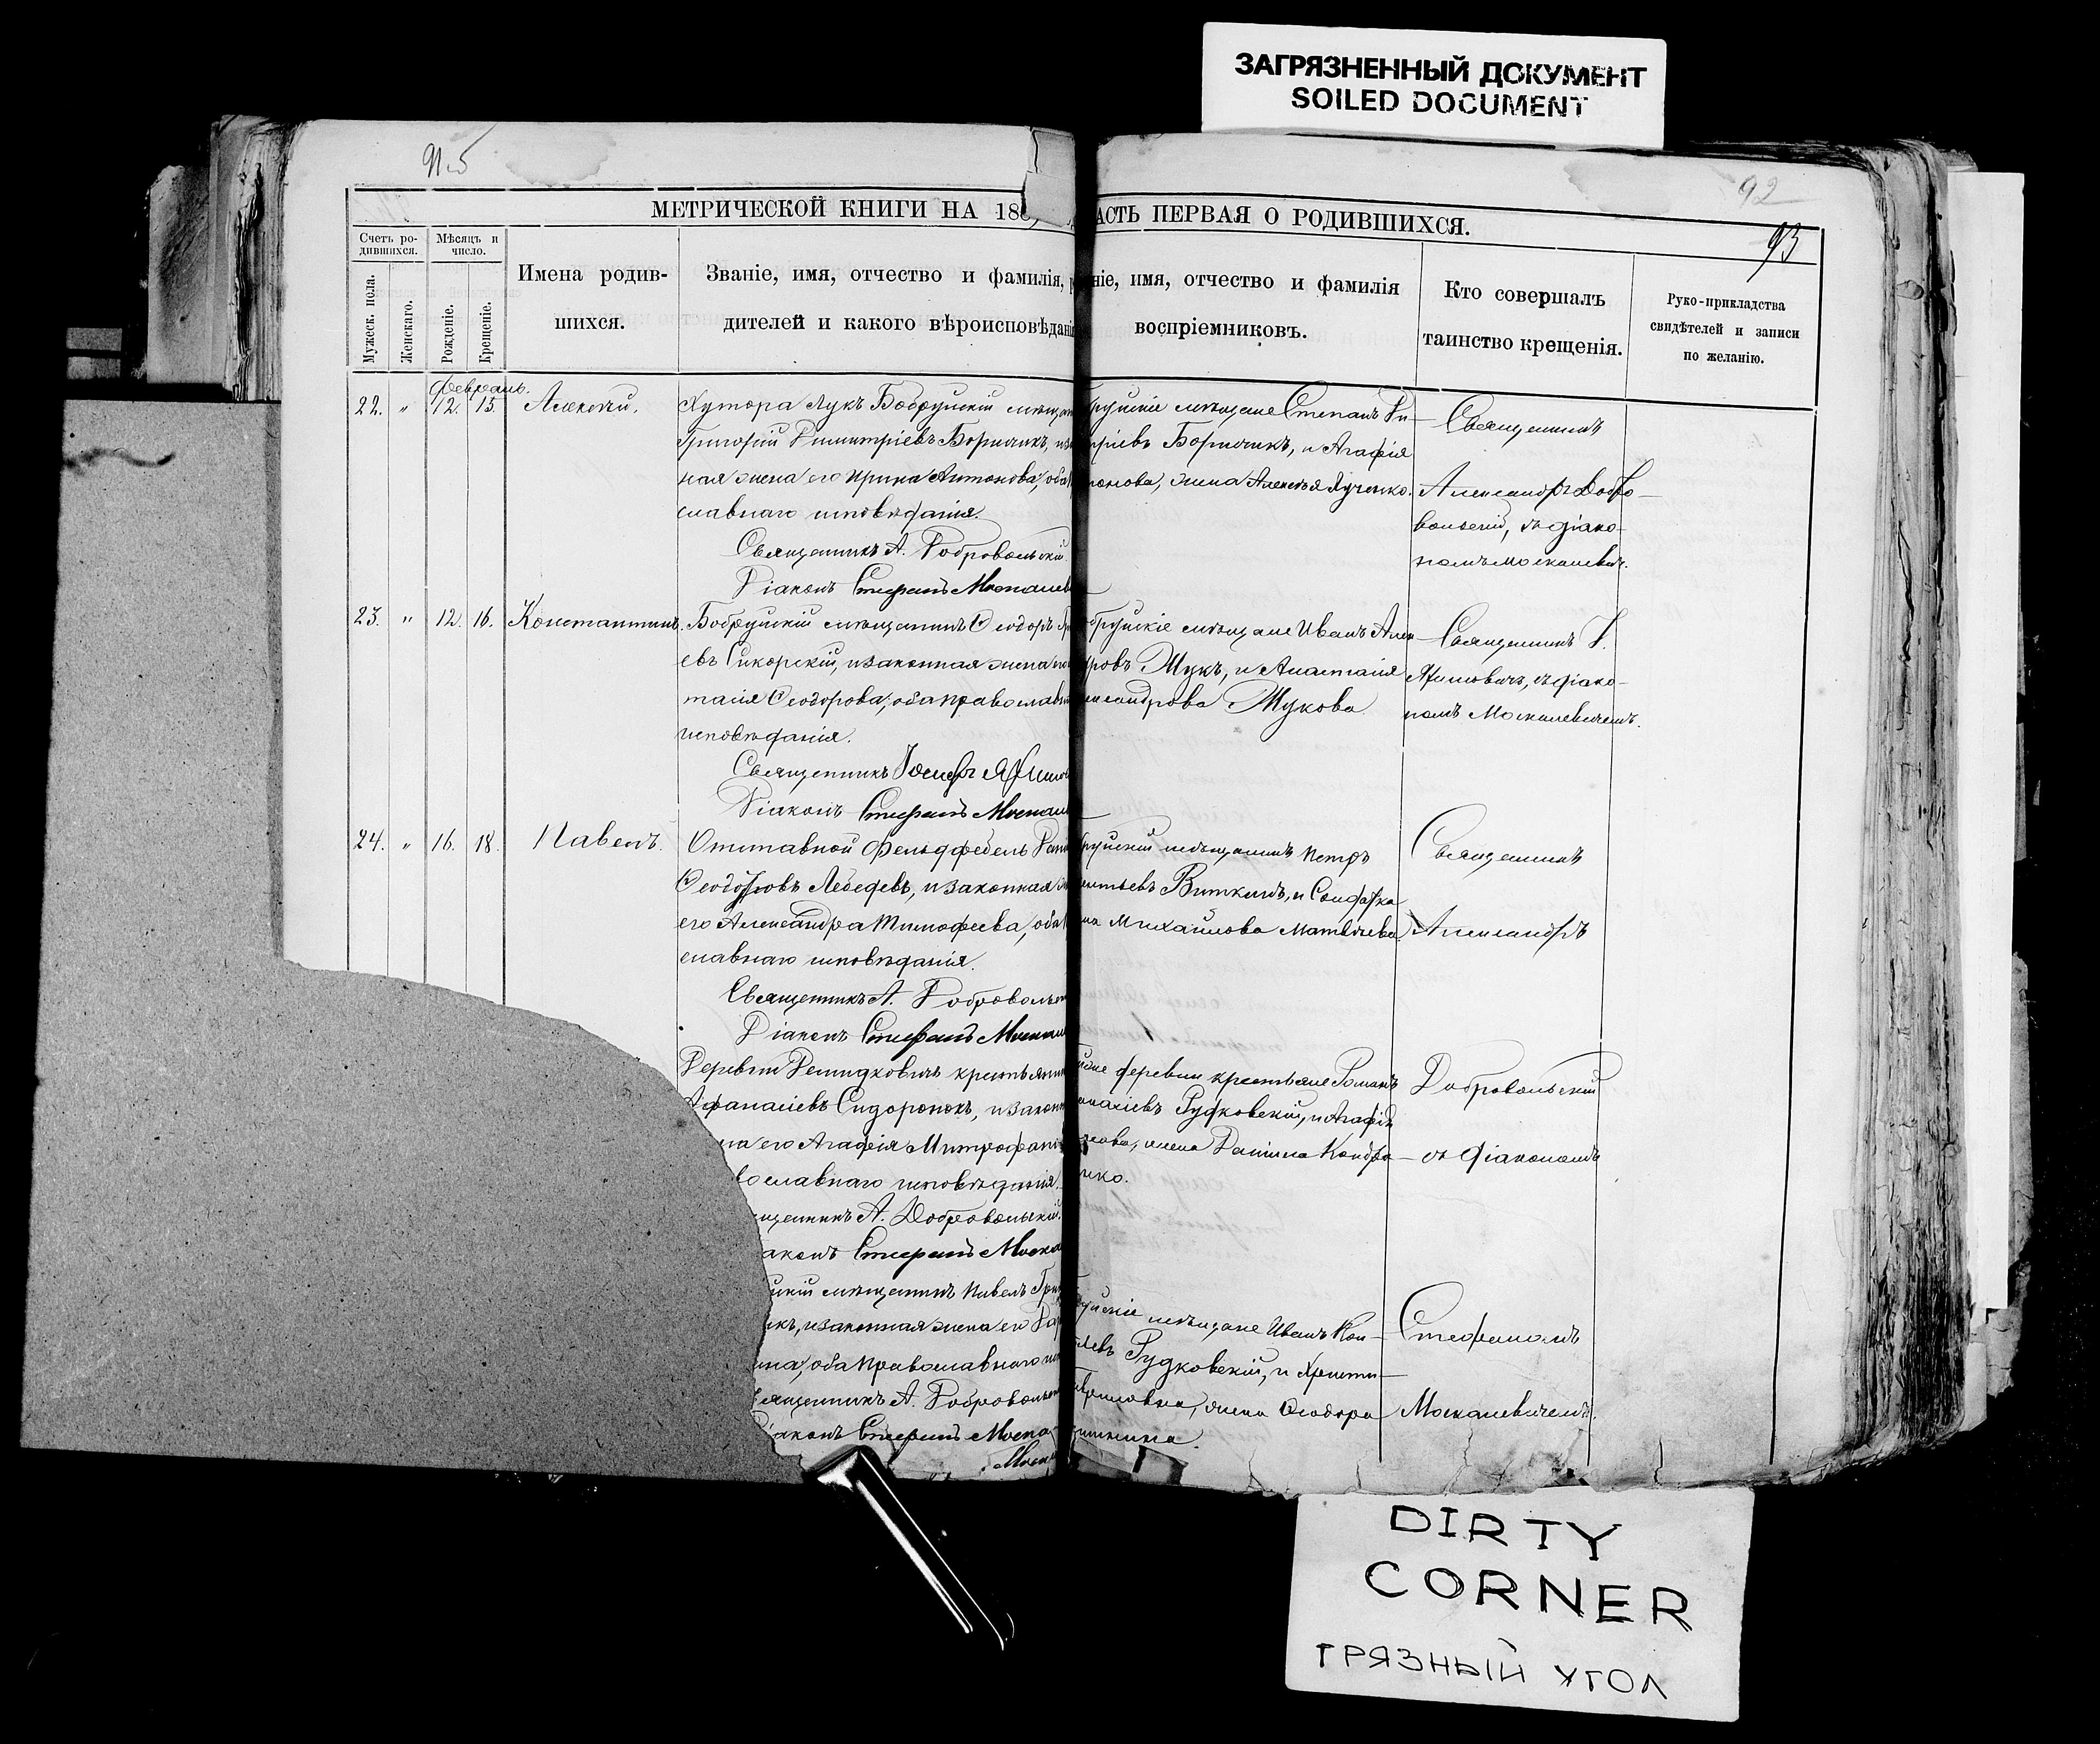 ЗАГРЯЗНЕННЫЙ ДОКУМЕНТ
SOILED DOCUMENT
92
93
МЕТРИЧЕСКОЙ КНИГИ НА 188
АСТЬ ПЕРВАЯ О РОДИВШИХСЯ.
Счетъ ро-
дившихся.
Мужеск. пола.
Женскаго.
Мѣсяцъ и
число.
Рожденіе.
Крещеніе.
Имена родив-
шихся.
Званіе, имя, отчество и фамилія, р
дителей и какого вѣроисповѣдані
ніе, имя, отчество и фамилія
воспріемниковъ.
Кто совершалъ
таинство крещенія.
Руко-прикладства
свидѣтелей и записи
по желанію.
Февраль.
22. " 12. 15. Алексѣй.
Хутора Лукъ Бобруйскій мѣщан
Григорій Димитріевъ Боричикъ, и за
ная жена его Ирина Антонова, оба
славнаго исповѣданія.
Священникъ А. Добровольскій
Діаконъ Стефанъ Москалев
руйскіе мѣщане Степанъ Ди-
тріевъ Боричикъ, и Агафія
жена Алексѣя
Священникъ
Александръ Добро-
вольскій, съ діако-
номъ Москалевич.
23. " 12. 16. Константинъ.
Бобруйскій мѣщанинъ Ѳеодоръ Гр
евъ Сикорскій, и законная жена его
тасія Ѳеодорова, оба православн
исповѣданія.
Священникъ Іосифъ
Діаконъ Стефанъ Москал
бруйскіе мѣщане Иванъ Алек-
дровъ Жукъ, и Анастасія
ександрова Жукова
Священникъ І.
съ діако-
номъ Москалевичемъ.
24. " 16. 18. Павелъ.
Отставной Фельдфебель Дани
Ѳеодоровъ Лебедевъ, и законная ж
его Александра Тимофеева, оба
славнаго исповѣданія.
Священникъ А. Добровольск
Діаконъ Стефанъ Москал
руйскій мѣщанинъ Петръ
Михайлова Матвѣева.
Священникъ
Александръ
Деревни крестьянин
Афанасіевъ Сидоренокъ, и законн
на его Агафія Митрофан
вославнаго исповѣданія.
щенникъ А. Добровольскій.
аконъ Стефанъ Моска
деревни крестьяне Романъ
Рудковскій, и Агафія
нова, жена Даніила Кондра-
нко.
Добровольскій
съ діакономъ
скій мѣщанинъ Павелъ Григ
икъ, и законная жена его
ина, оба православнаго исп
вященникъ А. Добровольск
Діаконъ Стефанъ Моска
Моск
руйскіе мѣщане Иванъ Кон-
Рудковскій, и Христи-
вриловна, жена Ѳеодора
Стефаномъ
Москалевичемъ.
DIRTY
CORNER
ГРЯЗНЫЙ УГОЛ